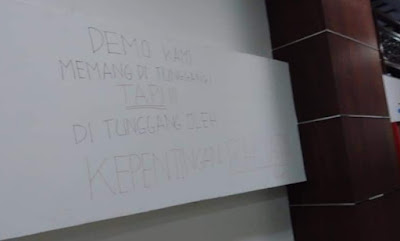 DEMO KAMI
MEMANG DI TUNGGANGI
TAPI!!
DI TUNGGANG OLEH
KEPENTINGAN